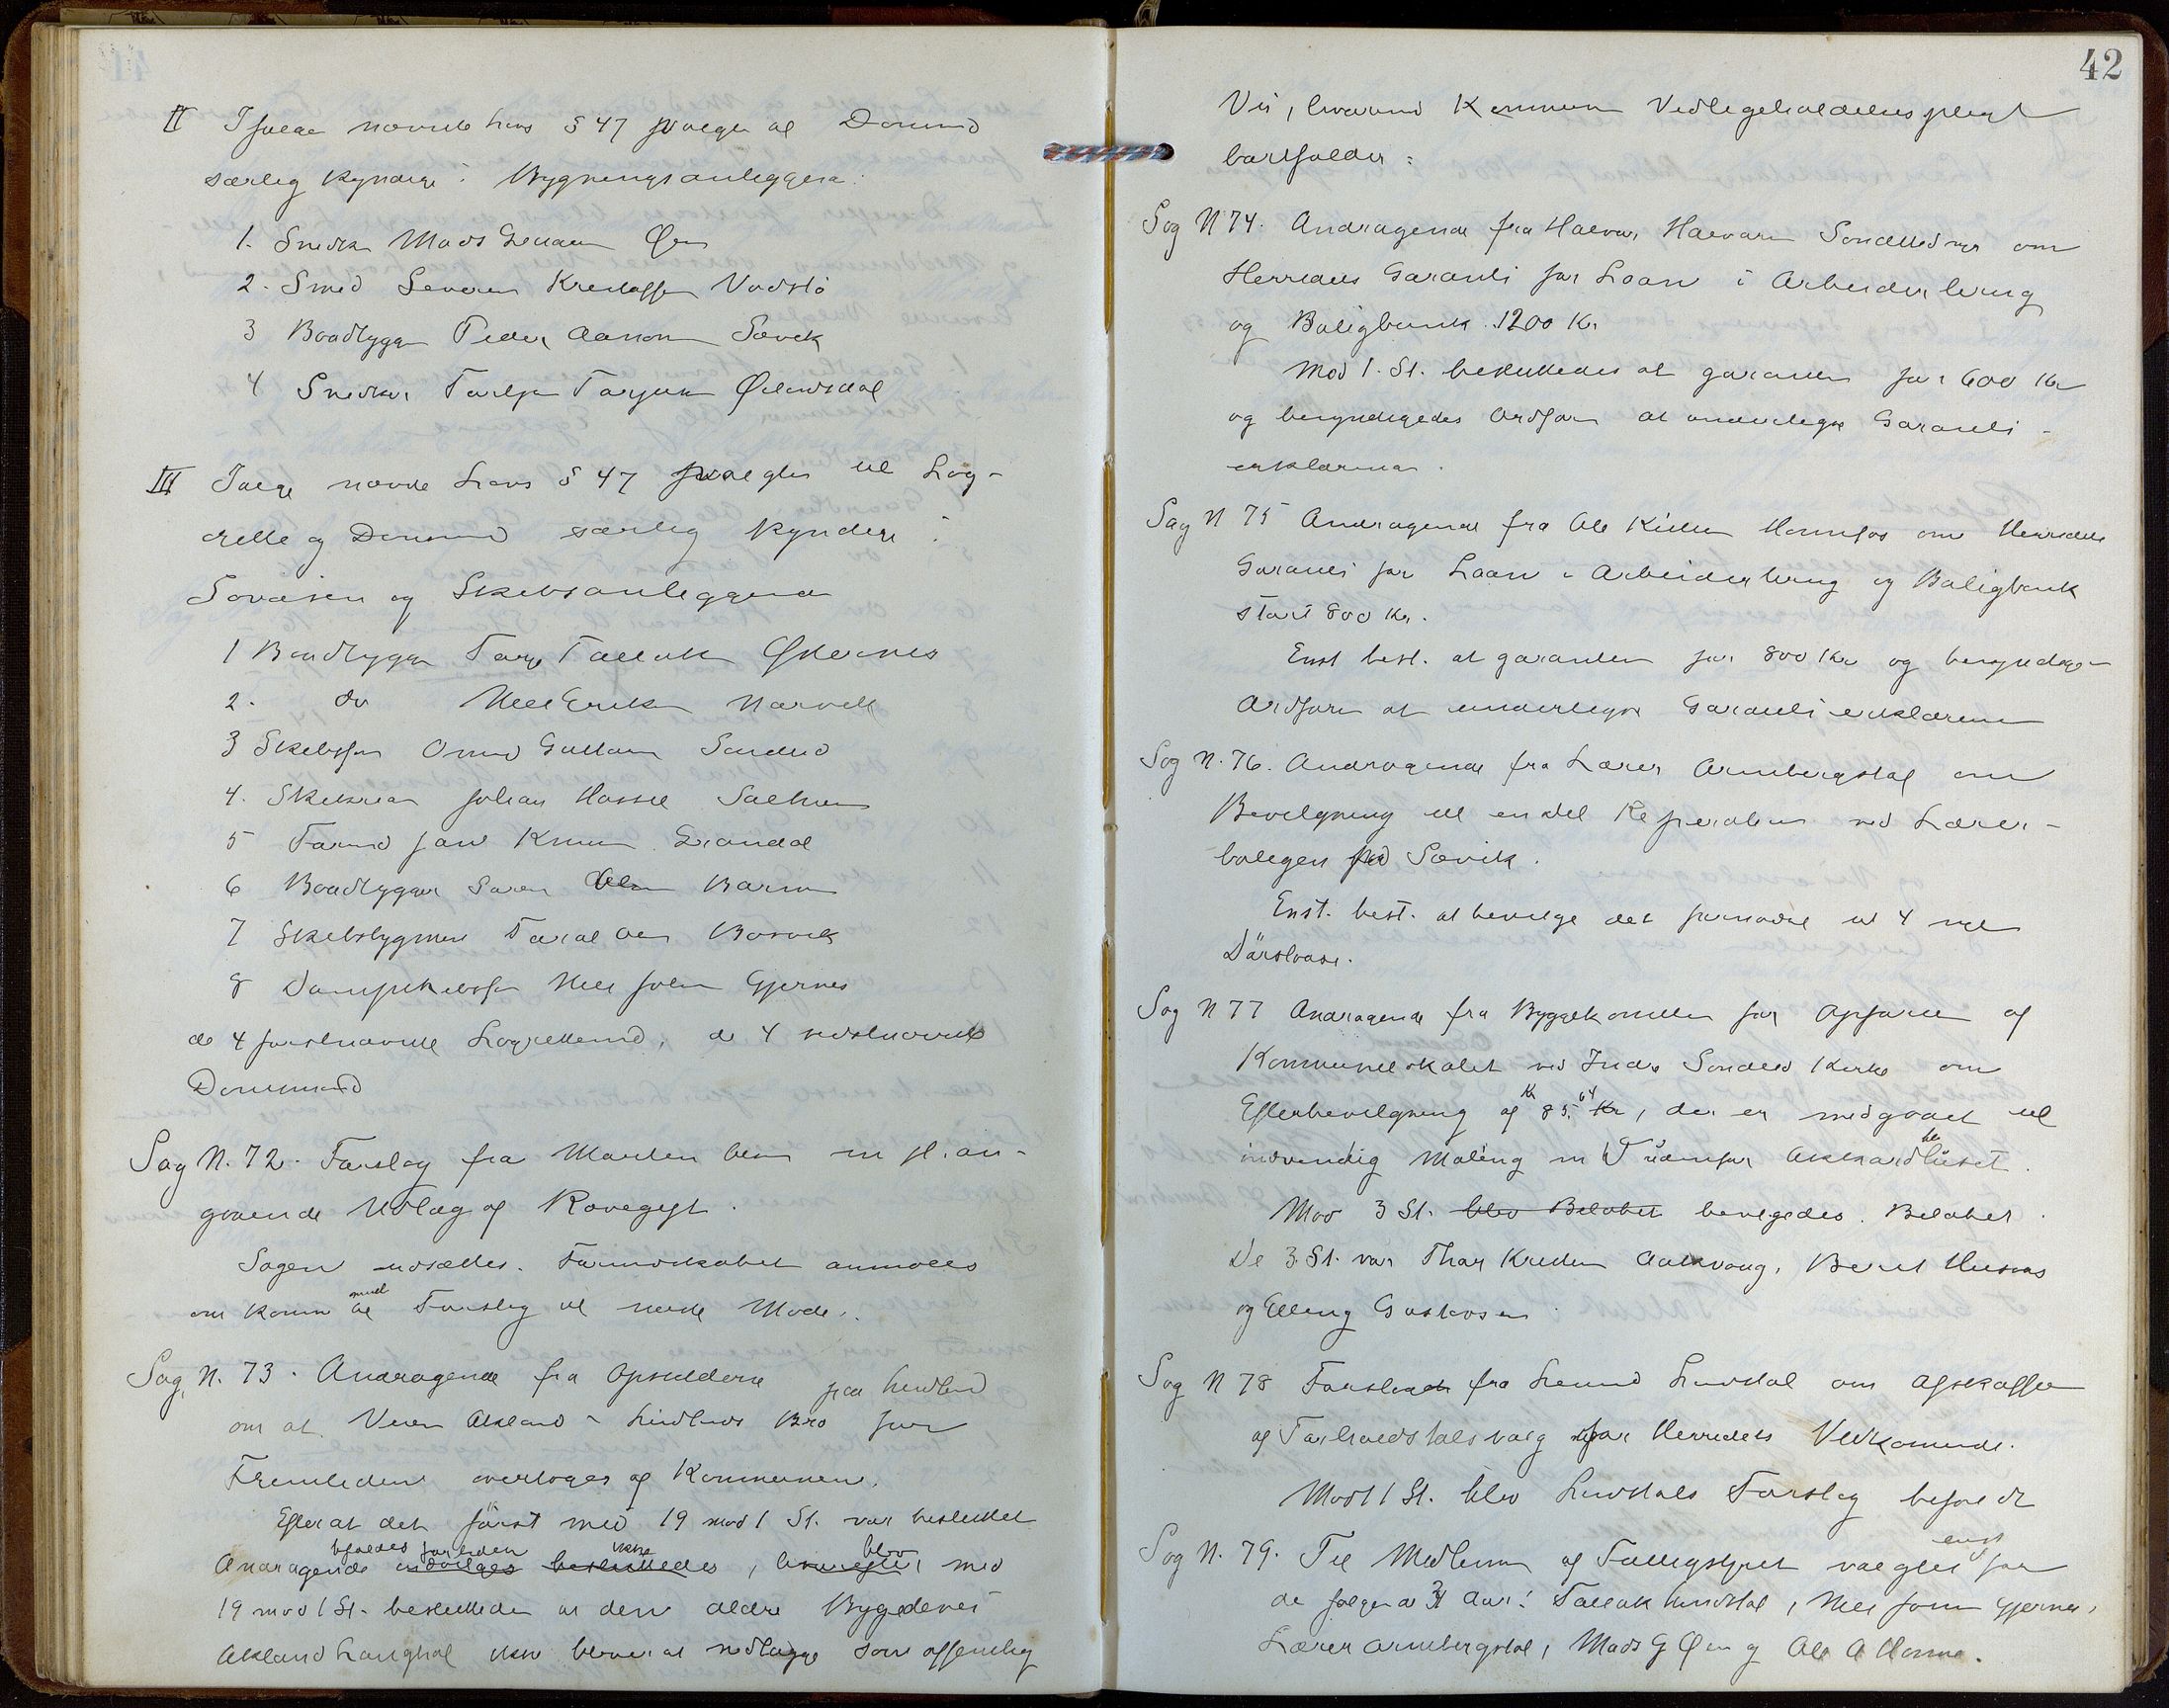 II Ifølge nævnte Lovs § 47 valgtes til Domsmænd
særlig kyndige i Bygningsanliggera:
1. Snedker Mads Øen
2. Smed Severin Kristoffersen Vodslö
3 Baadbygger Peder Aanonsen Sævik
4 Snedker Tarjei Tarjesen Ödensdal
III Ifølge nævnte Lovs § 47 valgtes til Lag-
rette og Domsmænd særlig kyndige i
Søvæsen og Skibsanliggende
1 Baadbygger Tarje Tallaksen
2. do Nils Eriksen Narvik
3 Skibsfører Omund Gullaksen Søndeled
4. Skibsreder Johan Hassel
5 Tømmermand Jens Knudsen Grandal
6 Baadbygger Søren Olsen Barmen
7 Skibsbygmester Taral Bosvik
8 Dampskibsfører Nils Johnsen Gjernes
de 4 førstnævnte Lagrettemænd, de 4 sidstnævnte
Domsmænd
Sag N. 72. Forslag fra Morten m fl. an-
gaaende Udlæg af Rævegift.
Sagen udsættes. Formandskabet anmodes
om komme med Forslag til neste Møde.
Sag N. 73. Andragende fra Opsidderne paa Lindland
om at Veien Akland - Lindlands Bro for
Fremtiden overtages af Kommunen.
Efterat det först med 19 mod 1 St. var besluttet
bifaldes for tiden ikke blev
Andragende indvilges besluttedes, med
19 mod 1 St. besluttedes at den ældre Bygdevei
Akland Langhol ikke bliver at nedlægge som offentlig
42
Vei, hvorimod Kommunens Vedligeholdelsespligt
bortfalder:
Sag N 74. Andragende fra Halvor Halvorsen Søndeled om
Herredets Garanti for Laan i Arbeiderbrug
og Boligbank 1200 Kr.
Mod 1. St. besluttedes at garantere for 600 Kr
og bemyndigedes Ordfører at underskrive Garanti-
erklæringen.
Sag N 75 Andragende fra Ole Kittelsen Hommefos om Herredets
Garanti for Laan i Arbeiderbrug og Boligbank
stort 800 Kr.
Enst besl. at garantere for 800 Kr og bemyndiges
Ordfører at undertegne Garantierklæringen
Sag N. 76. Andragende fra Lærer Armbergstøl om
Bevilgning til en del Reperation ved Lærer-
boligen ved Sævik.
Enst. besl. at bevilge det fornødne til 4 nye
Dörslaase.
Sag N 77 Andragende fra Byggekomiteen for Opførelse af
Kommunelokalet ved Indre Søndeled Kirke om
Efterbevilgning af Kr 85.64 Kr, der er medgaaet til
indvendig Maling m V udenfor Akkordbeløbet.
Mod 3 St. blev Beløbet bevilgedes. Beløbet
De 3 St. var Thor Kristen Aakvaag, Berul Husaas
og Elling Gustavsen
Sag N 78 Forslag fra Lensmd Lindstøl om Afskaffen
af Forholdstalsvalg for Herredets Vedkommende.
Mod 1 St. blev Lindstøls Forslag bifaldt
Sag N. 79. Til Medlemmer af Fattigstyret valgtes enst for
de følgende 3 Aar: Tallak Lindstøl, Nils Johnsen Gjernes,
Lærer Armbergstøl, Mads G Øen og Ole A Homme.